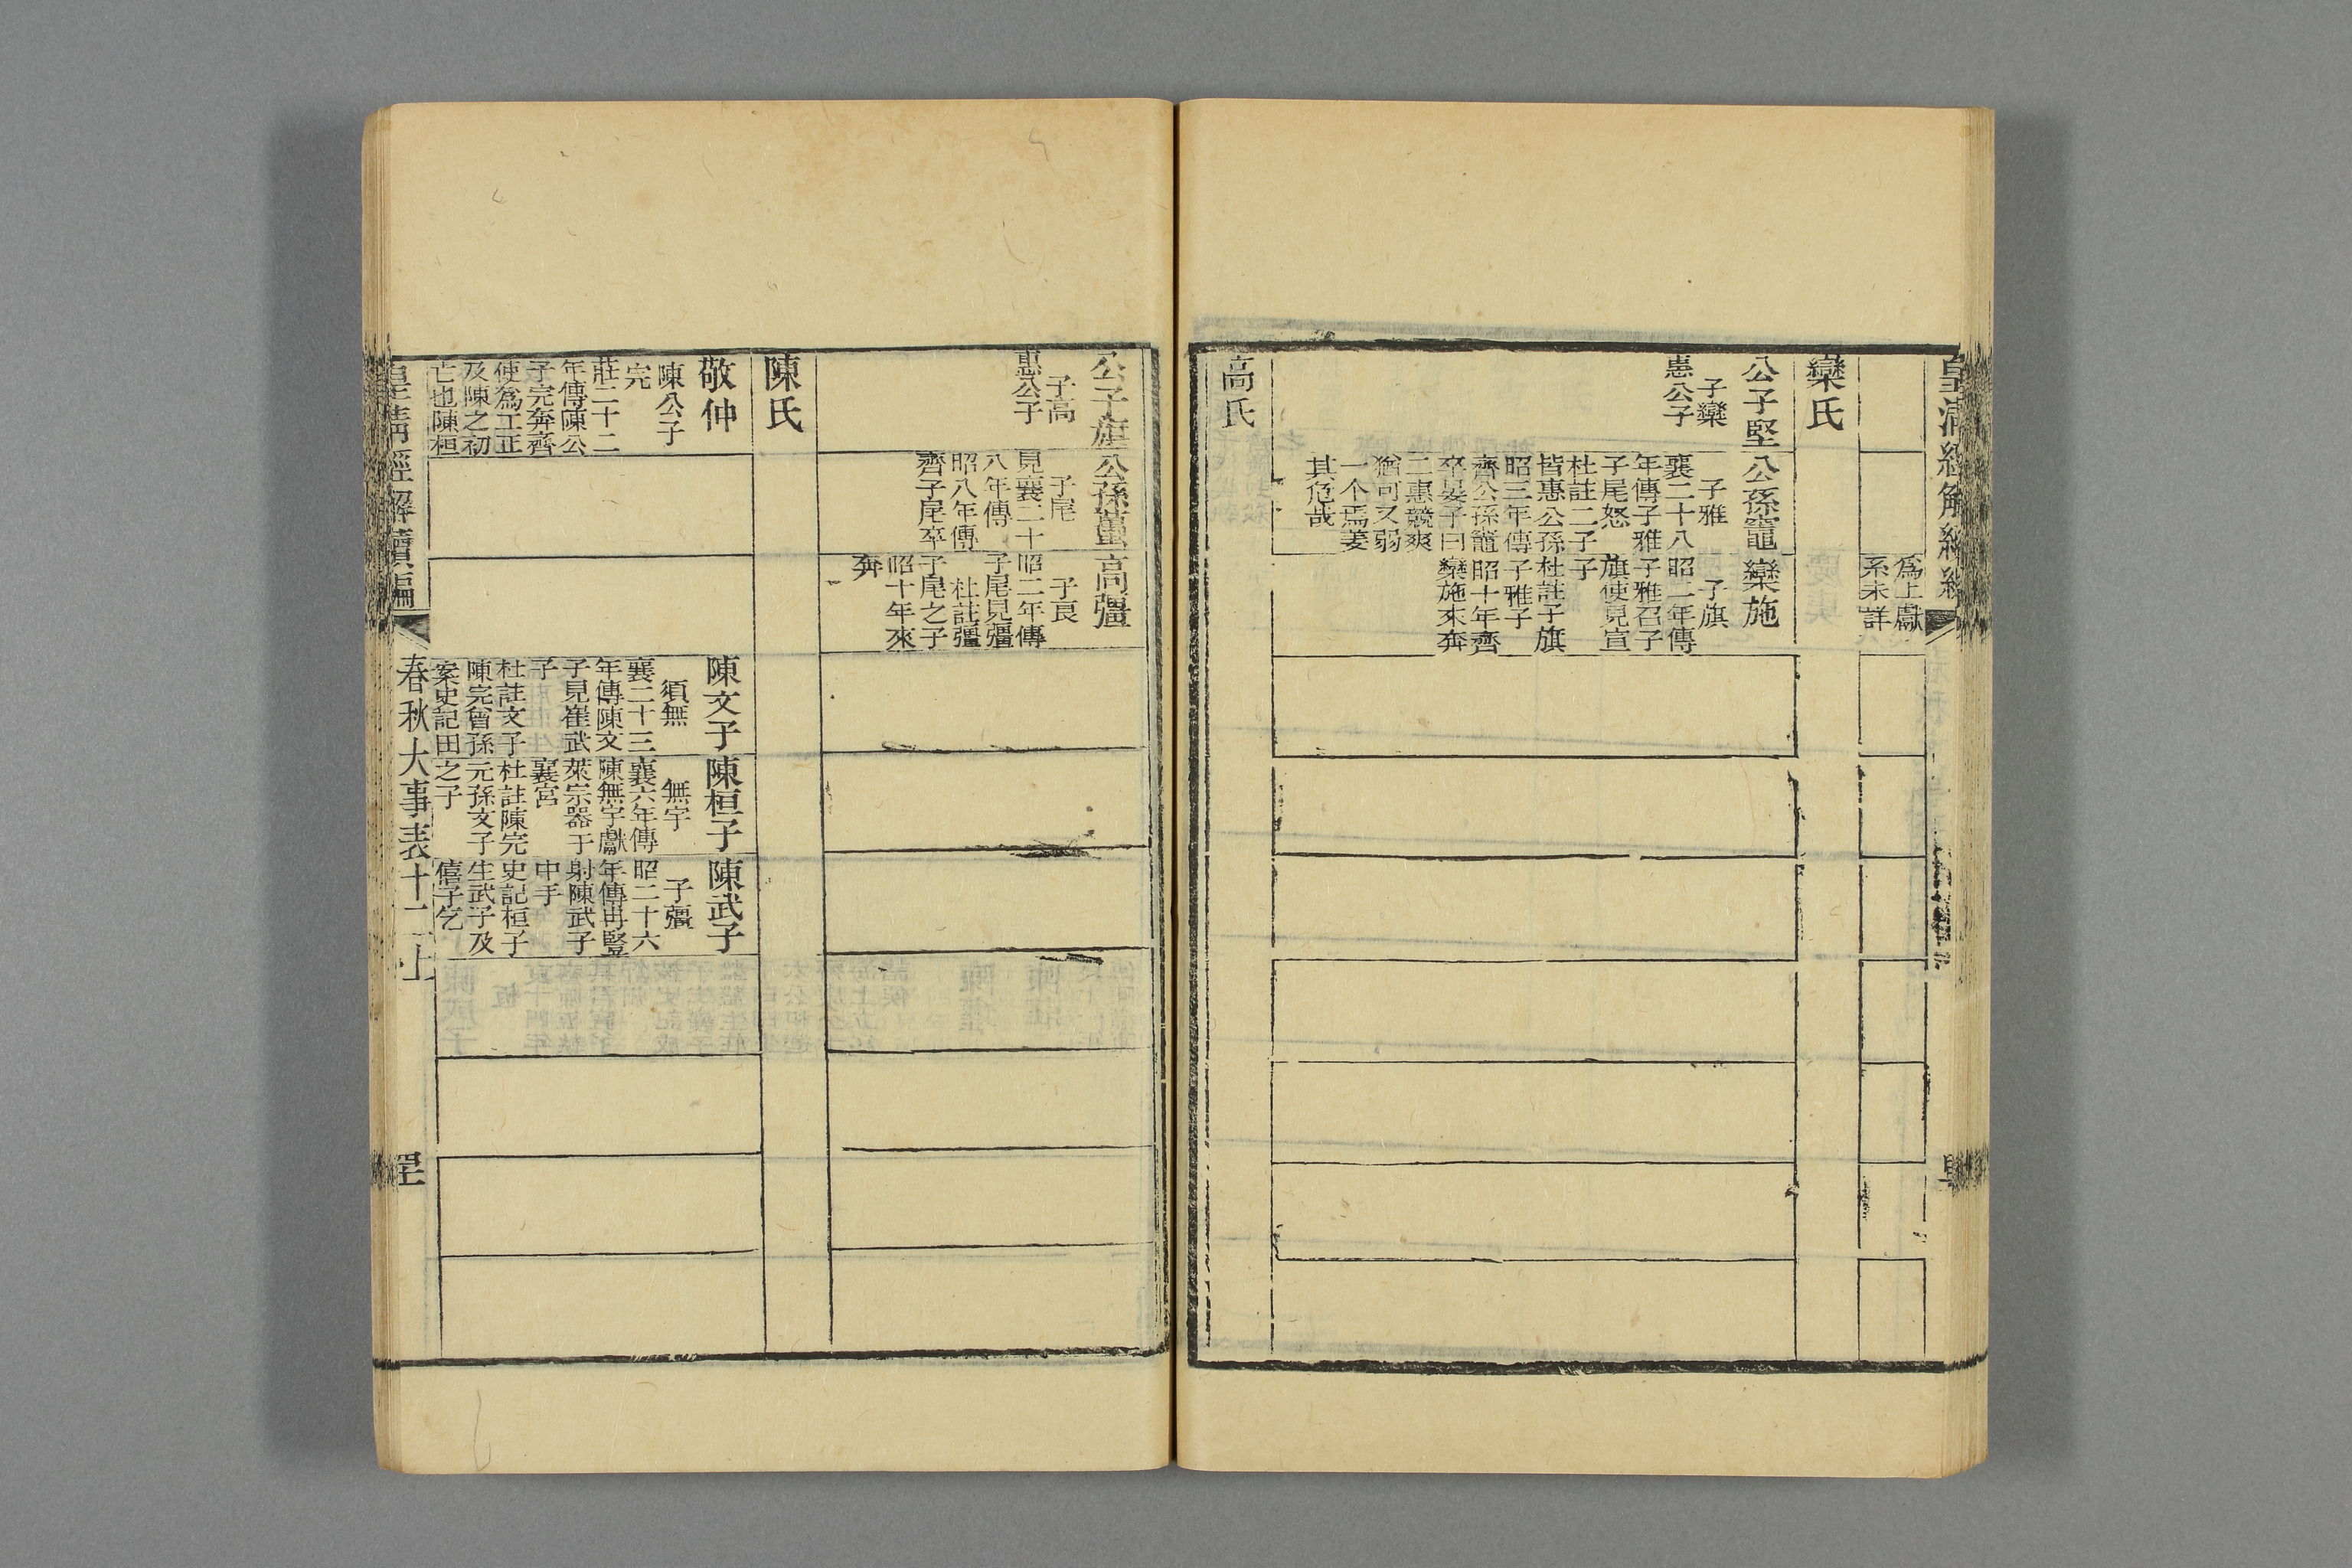 爲上獻
系未詳
欒氏
公子堅
子欒
惠公子
公孫竈
子雅
襄二十八
年傳子雅
子尾怒
杜註二子
皆惠公孫
昭三年傳
齊公孫竈
卒晏子曰
二惠競爽
猶可又弱
一个焉姜
其危哉
欒施
子旗
昭二年傳
子雅召子
旗使見宣
子
杜註子旗
子雅子
昭十年齊
欒施來奔
高氏
公子旗
子高
惠公子
公孫蠆
子尾
見襄二十
八年傳
昭八年傳
齊子尾卒
高彊
子良
昭二年傳
子尾見彊
杜註彊
子尾之子
昭十年來
奔
陳氏
敬仲
陳公子
完
莊二十二
年傳陳公
子完奔齊
使爲工正
及陳之初
亡也陳桓
陳文子
須無
襄二十三
年傳陳文
子見崔武
子
杜註文子
陳完曾孫
案史記田
陳桓子
無宇
襄六年傳
陳無宇獻
萊宗器于
襄宮
杜註陳完
元孫文子
之子
陳武子
子彊
昭二十六
年傳冉豎
射陳武子
中手
史記桓子
生武子及
僖子乞
皇清經解續編
春秋大事表十二上